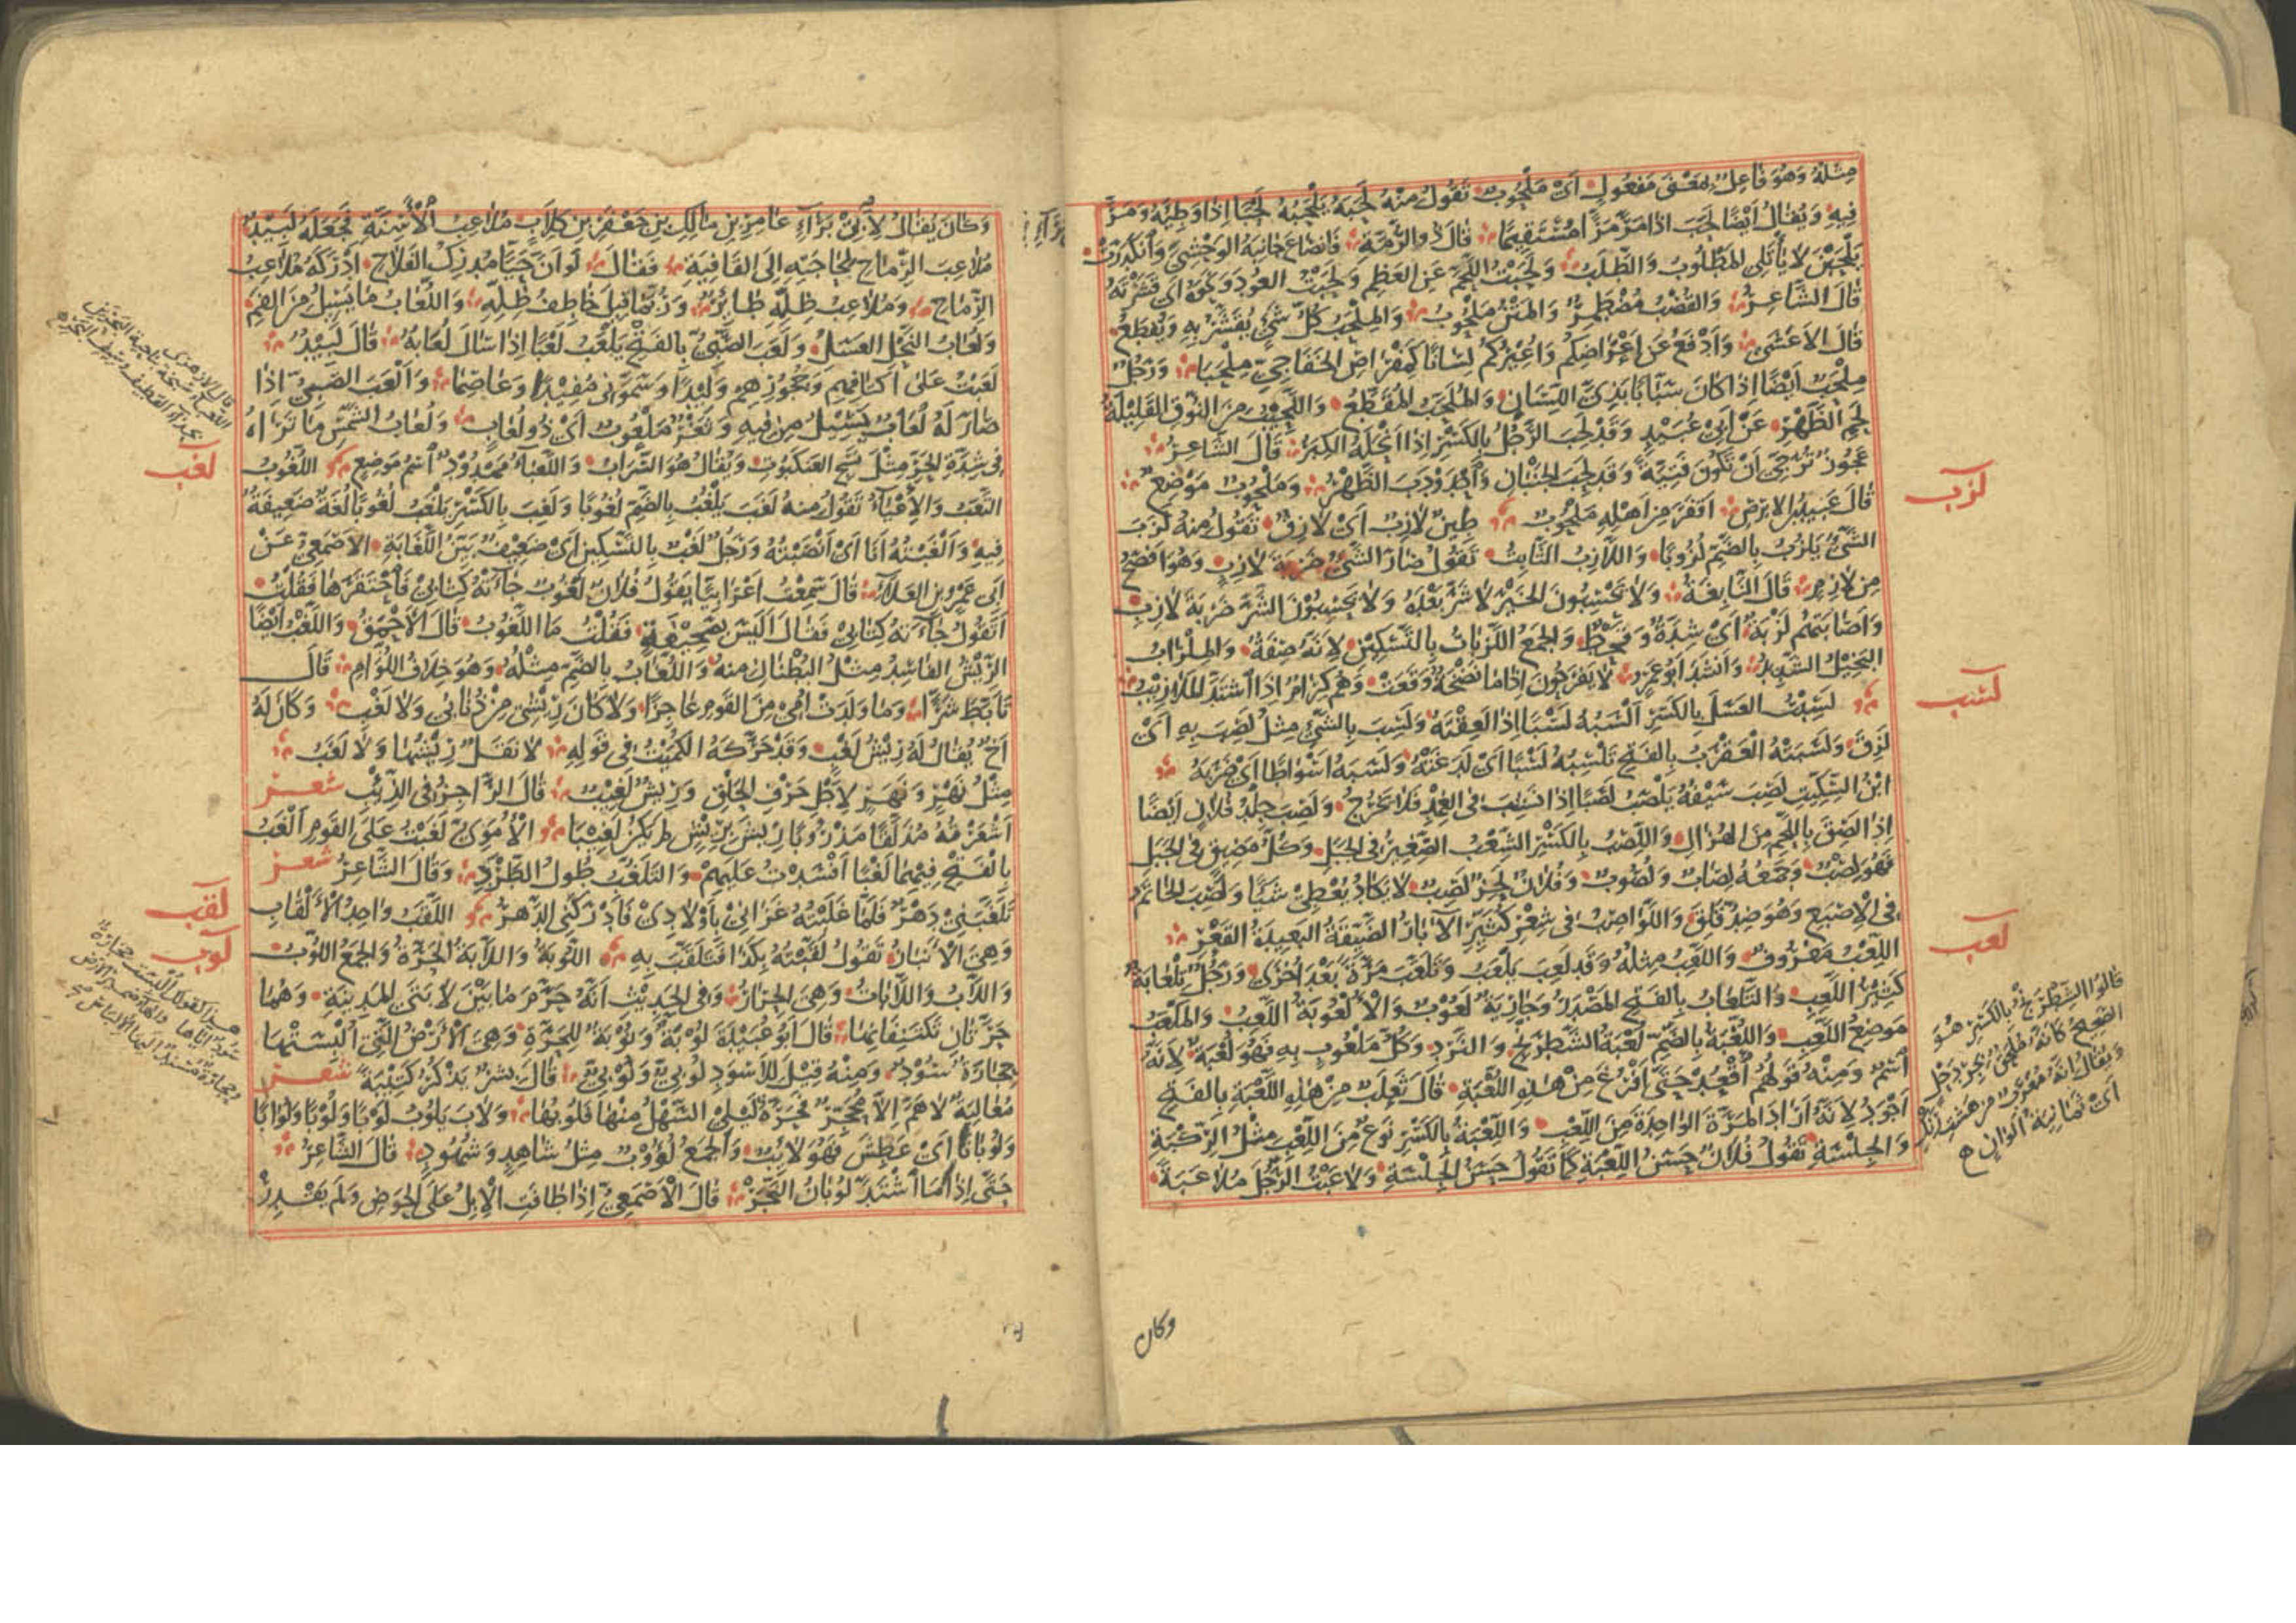 مِثْلُهُ وَهُوَ فَاعِلٌ بِمَعْنَى مَفْعُولٍ اَىْ مَلْحُوبٌ تَقُولُ مِنْهُ لَحَبَهُ يَلْحَبُهُ لَحْبًا اِذَا وَطِئَهُ وَمَرَّ
فِيهِ وَيُقَالُ اَيْضًا لَحَبَ اِذَا مَرَّ مَرًّا مُسْتَقِيمًا قَالَ ذُو الرُّمَّةِ فَانْصَاعَ جَانِبُهُ الوَحْشِىُّ وَانْكَدَرَتْ
يَلْحَبْنَ لَا يَأْتَلِى المَطْلُوبُ وَالطَّلَبُ وَلَحَبْتُ اللَّحْمَ عَنِ العَظْمِ وَلَحَبْتُ العُودَ وَنَحْوَهُ اى قَشَرْتَهُ
قَالَ الشَّاعِرُ وَالقُصْبُ مُضْطَمِرٌ وَالمَتْنُ مَلْحُوبُ وَالمِلْحَبُ كُلُّ شَىْءٍ يُقْشَرُ بِهِ وَيُقْطَعُ
قَالَ الاَعْشَى وَاَدْفَعُ عَنْ اَعْرَاضِكُمْ وَاُعِيرُكُمْ لِسَانًا كَمِقْرَاضِ الخَفَاجِىِّ مِلْحَبَا وَرَجُلٌ
مِلْحَبٌ اَيْضًا اِذَا كَانَ سَبَّابًا بَذِىَّ اللِّسَانِ وَالمُلَحَّبُ المُقَطَّعُ وَاللَّحِيبُ مِنَ النُّوقِ القَلِيلَةُ
لَحْمِ الظَّهْرِ عَنْ اَبِى عُبَيْدٍ وَقَدْ لَحِبَ الرَّجُلُ بِالكَسْرِ اِذَا اَنْحَلَهُ الكِبَرُ قَالَ الشَّاعِرُ
عَجُوزٌ تُرَجِّى اَنْ تَكُونَ فَتِيَّةً وَقَدْ لَحِبَ الجَنْبَانِ وَاحْدَوْدَبَ الظَّهْرُ وَمَلْحُوبٌ مَوْضِعٌ
قَالَ عَبِيدُ بْنُ الابْرَصِ اَقْفَرَ مِنْ اَهْلِهِ مَلْحُوبُ طِينٌ لَازِبٌ اَىْ لَازِقٌ تَقُولُ مِنْهُ لَزَبَ
لزب
الشَّىْءُ يَلْزُبُ بِالضَّمِّ لُزُوبًا وَاللَّازِبُ الثَّابِتُ تَقُولُ صَارَ الشَّىْءُ ضَرْبَةَ لَازِبٍ وَهُوَ اَفْصَحُ
مِنْ لَازِمٍ قَالَ النَّابِغَةُ وَلَا يَحْسِبُونَ الخَيْرَ لَا شَرَّ بَعْدَهُ وَلَا يَحْسِبُونَ الشَّرَّ ضَرْبَةَ لَازِبِ
وَاَصَابَتْهُمْ لَزْبَةٌ اَىْ شِدَّةٌ وَقَحْطٌ وَالجَمْعُ اللَّزْبَاتُ بِالتَّسْكِينِ لِاَنَّهُ صِفَةٌ وَالمِلْزَابُ
البَخِيلُ الشَّدِيدُ وَاَنْشَدَ اَبُو عَمْرٍو لَا يَفْرَحُونَ اِذَا مَا نَضْخَةٌ وَقَعَتْ وَهُمْ كِرَامٌ اِذَا اشْتَدَّ المَلَازِيبُ
لَسِبْتُ العَسَلَ بِالكَسْرِ اَلْسَبُهُ لَسْبًا اِذَا لَعِقْتَهُ وَلَسِبَ بِالشَّىْءِ مِثْلُ لَصِبَ بِهِ اَىْ
لسب
لَزِقَ وَلَسَبَتْهُ العَقْرَبُ بِالفَتْحِ تَلْسِبُهُ لَسْبًا اَىْ لَدَغَتْهُ وَلَسَبَهُ اَسْوَاطًا اَىْ ضَرَبَهُ
ابْنُ السِّكِّيتِ لَصِبَ سَيْفُهُ يَلْصَبُ لَصَبًا اِذَا نَشِبَ فِى الغِمْدِ فَلَا يَخْرُجُ وَلَصِبَ جِلْدُ فُلَانٍ اَيْضًا
اِذَا لَصِقَ بِاللَّحْمِ مِنَ الهُزَالِ وَاللِّصْبُ بِالكَسْرِ الشِّعْبُ الصَّغِيرُ فِى الجَبَلِ وَكُلُّ مَضِيقٍ فِى الجَبَلِ
فَهُوَ لِصْبٌ وَجَمْعُهُ لِصَابٌ وَلُصُوبٌ وَفُلَانٌ لَحِزٌ لَصِبٌ لَا يَكَادُ يُعْطِى شَيْئًا وَلَصِبَ الخَاتَمُ
فِى الاِصْبَعِ وَهُوَ ضِدُّ قَلِقَ وَاللَّوَاصِبُ فِى شِعْرِ كُثَيِّرٍ الآبَارُ الضَّيِّقَةُ البَعِيدَةُ القَعْرِ
اللَّعِبُ مَعْرُوفٌ وَاللِّعْبُ مِثْلُهُ وَقَدْ لَعِبَ يَلْعَبُ وَتَلَعَّبَ مَرَّةً بَعْدَ اُخْرَى وَرَجُلٌ تِلْعَابَةٌ
لعب
كَثِيرُ اللَّعِبِ وَالتَّلْعَابُ بِالفَتْحِ المَصْدَرُ وَجَارِيَةٌ لَعُوبٌ وَالْاُلْعُوبَةُ اللَّعِبُ وَالمَلْعَبُ
مَوْضِعُ اللَّعِبِ وَاللُّعْبَةُ بِالضَّمِّ لُعْبَةُ الشِّطْرَنْجِ وَالنَّرْدِ وَكُلُّ مَلْعُوبٍ بِهِ فَهُوَ لُعْبَةٌ لِاَنَّهُ
اسْمٌ وَمِنْهُ قَوْلُهُمْ اُقْعُدْ حَتَّى اَفْرُغَ مِنْ هٰذِهِ اللُّعْبَةِ قَالَ ثَعْلَبٌ مِنْ هٰذِهِ اللَّعْبَةِ بِالفَتْحِ
اَجْوَدُ لِاَنَّهُ اَرَادَ المَرَّةَ الوَاحِدَةَ مِنَ اللَّعِبِ وَاللِّعْبَةُ بِالكَسْرِ نَوْعٌ مِنَ اللَّعِبِ مِثْلُ الرِّكْبَةِ
وَالجِلْسَةِ تَقُولُ فُلَانٌ حَسَنُ اللِّعْبَةِ كَمَا تَقُولُ حَسَنُ الجِلْسَةِ وَلَاعَبْتُ الرَّجُلَ مُلَاعَبَةً
قَالُوا الشِّطْرَنْجُ بِالكَسْرِ هُوَ
الصَّحِيحُ كَاَنَّهُ
وَيُقَالُ اِنَّهُ مُعَرَّبٌ مِنْ
اَىْ ثَمَانِيَةُ اَلْوَانٍ
وكان
وَكَانَ يُقَالُ لِاَبِى بَرَآءٍ عَامِرِ بْنِ مَالِكِ بْنِ جَعْفَرِ بْنِ كِلَابٍ مُلَاعِبُ الْاَسِنَّةِ فَجَعَلَهُ لَبِيدٌ
مُلَاعِبَ الرِّمَاحِ لِحَاجَتِهِ اِلَى القَافِيَةِ فَقَالَ لَوْ اَنَّ حَيًّا مُدْرِكُ الفَلَاحِ اَدْرَكَهُ مُلَاعِبُ
الرِّمَاحِ وَمُلَاعِبُ ظِلِّهِ طَائِرٌ وَرُبَّمَا قِيلَ خَاطِفُ ظِلِّهِ وَاللُّعَابُ مَا يَسِيلُ مِنَ الفَمِ
وَلُعَابُ النَّحْلِ العَسَلُ وَلَعَبَ الصَّبِىُّ بِالفَتْحِ يَلْعَبُ لَعْبًا اِذَا سَالَ لُعَابُهُ قَالَ لَبِيدٌ
لَعَبْتُ عَلَى اَكْتَافِهِمْ وَحُجُورِهِمْ وَلِيدًا وَسَمَّوْنِى مُفِيدًا وَعَاصِمًا وَاَلْعَبَ الصَّبِىُّ اِذَا
صَارَ لَهُ لُعَابٌ يَسِيلُ مِنْ فِيهِ وَثَغْرٌ مَلْعُوبٌ اَىْ ذُو لُعَابٍ وَلُعَابُ الشَّمْسِ مَا تَرَاهُ
فِى شِدَّةِ الحَرِّ مِثْلَ نَسْجِ العَنْكَبُوتِ وَيُقَالُ هُوَ السَّرَابُ وَاللَّعْبَاءُ مَمْدُودٌ اسْمُ مَوْضِعٍ اللُّغُوبُ
لغب
التَّعَبُ وَالاِعْيَآءُ تَقُولُ مِنْهُ لَغَبَ يَلْغُبُ بِالضَّمِّ لُغُوبًا وَلَغِبَ بِالكَسْرِ يَلْغَبُ لُغُوبًا لُغَةٌ ضَعِيفَةٌ
فِيهِ وَاَلْغَبْتُهُ اَنَا اَىْ اَنْصَبْتُهُ وَرَجُلٌ لَغْبٌ بِالتَّسْكِينِ اَىْ ضَعِيفٌ بَيِّنُ اللَّغَابَةِ الاَصْمَعِىُّ عَنْ
اَبِى عَمْرِو بْنِ العَلَآءِ قَالَ سَمِعْتُ اَعْرَابِيًّا يَقُولُ فُلَانٌ لَغُوبٌ جَآءَتْهُ كِتَابِى فَاحْتَقَرَهَا فَقُلْتُ
اَتَقُولُ جَآءَتْهُ كِتَابِى فَقَالَ اَلَيْسَ بِصَحِيفَةٍ فَقُلْتُ مَا اللَّغُوبُ قَالَ الْاَحْمَقُ وَاللَّغْبُ اَيْضًا
الرِّيشُ الفَاسِدُ مِثْلُ البُطْنَانِ مِنْهُ وَاللُّغَابُ بِالضَّمِّ مِثْلُهُ وَهُوَ خِلَافُ اللُّؤَامِ قَالَ
تَاَبَّطَ شَرًّا وَمَا وَلَدَتْ اُمِّى مِنَ القَوْمِ عَاجِزًا وَلَا كَانَ رِيشِى مِنْ ذُنَابَى وَلَا لَغْبِ وَكَانَ لَهُ
اَخٌ يُقَالُ لَهُ رِيشُ لَغْبٍ وَقَدْ حَرَّكَهُ الكُمَيْتُ فِى قَوْلِهِ لَا نَقَلٌ رِيشُهَا وَلَا لَغَبُ
مِثْلُ نَهْرٍ وَنَهَرٍ لِاَجْلِ حَرْفِ الحَلْقِ وَرِيشٌ لَغِيبٌ قَالَ الرَّاجِزُ فِى الذِّئْبِ شعر
اَشْعَرْتُهُ مُذَلَّقًا مَذْرُوبَا رِيشَ بِرِيشٍ لَمْ يَكُنْ لَغِيبَا الْاُمَوِىُّ لَغَبْتُ عَلَى القَوْمِ اَلْغَبُ
بِالفَتْحِ فِيهِمَا لَغْبًا اَفْسَدْتُ عَلَيْهِمْ وَالتَّلَغُّبُ طُولُ الطَّرَدِ وَقَالَ الشَّاعِرُ شعر
تَلَغَّبَنِى دَهْرٌ فَلَمَّا غَلَبْتُهُ غَزَانِى بِاَوْلَادِى فَاَدْرَكَنِى الدَّهْرُ اللَّقَبُ وَاحِدُ الْاَلْقَابِ
لقب
وَهِىَ الْاَنْبَازُ تَقُولُ لَقَّبْتُهُ بِكَذَا فَتَلَقَّبَ بِهِ اللُّوبَةُ وَاللَّابَةُ الحَرَّةُ وَالجَمْعُ اللُّوبُ
لوب
وَاللَّابُ وَاللَّابَاتُ وَهِىَ الحِرَارُ وَفِى الحَدِيثِ اَنَّهُ حَرَّمَ مَا بَيْنَ لَابَتَىِ المَدِينَةِ وَهُمَا
حَرَّتَانِ تَكْتَنِفَانِهَا قَالَ اَبُو عُبَيْدَةَ لُوبَةٌ وَنُوبَةٌ لِلْحَرَّةِ وَهِىَ الْاَرْضُ الَّتِى اَلْبَسَتْهَا
حِجَارَةٌ سُودٌ وَمِنْهُ قِيلَ لِلْاَسْوَدِ لُوبِىٌّ وَنُوبِىٌّ قَالَ بِشْرٌ يَذْكُرُ كَتِيبَةً شعر
مُعَالِيَةٌ لَا هَمَّ اِلَّا مُحَجِّرٌ فَحَرَّةُ لَيْلَى السَّهْلُ مِنْهَا فَلُوبُهَا وَلَابَ يَلُوبُ لَوْبًا وَلُوبًا وَلُوَابًا
وَلَوَبَانًا اَىْ عَطِشَ فَهُوَ لَائِبٌ وَالجَمْعُ لُؤُوبٌ مِثْلُ شَاهِدٍ وَشُهُودٍ قَالَ الشَّاعِرُ
حَتَّى اِذَا مَا اشْتَدَّ لُوبَانُ النَّجَرْ قَالَ الْاَصْمَعِىُّ اِذَا طَافَتِ الْاِبِلُ عَلَى الحَوْضِ وَلَمْ تَقْدِرْ
قال الازهرى